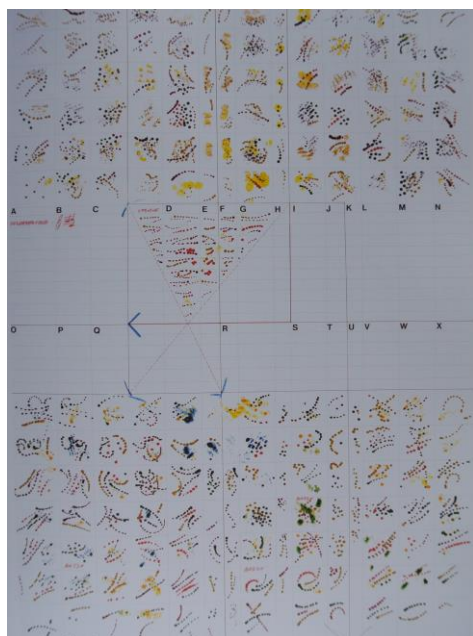 A B C D E F G H I J K L M N
O P Q R S T U V W X